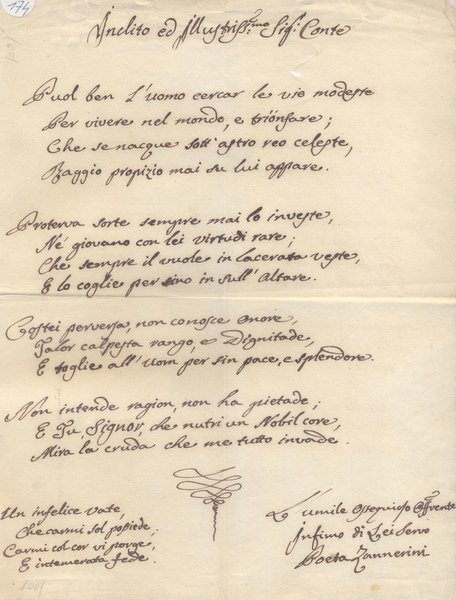 174
Inclito ed Illustriss:mo Sig:r Conte
Puol ben l'uomo cercar le vie modeste
Per vivere nel mondo, e triõnfare;
Che se nacque sott'astro reo celeste,
Raggio propizio mai su lui appare.
Proterva sorte sempre mai lo investe,
Nè giovano con lei virtudi rare;
Chè sempre il vuole in lacerata veste,
E lo coglie per sino in sull'Altare.
Costei perversa, non conosce Onore,
Talor calpesta rango, e Dignitade,
E toglie all'Uom per sin pace, e splendore.
Non intende ragion, non ha pietade;
E Tu, Signor, che nutri un Nobil core,
Mira la cruda che me tutto invade.
Un infelice vate,
Che carmi sol possiede;
Carmi col cor vi porge,
E intemerata fede.
L'umile Ossequioso
Infimo di Lei Servo
Poeta Zannerini